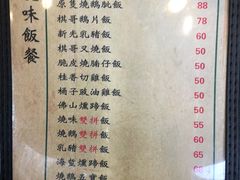 燒味飯餐
原隻燒鵝髀飯 88
棋哥鵝片飯 78
新光乳豬飯 60
棋哥叉燒飯 50
脆皮燒腩仔飯 50
桂香切雞飯 50
橘子豉油雞飯 50
佛山燻蹄飯 50
燒味雙拼飯 55
燒鵝雙拼飯 60
乳豬雙拼飯 65
海蜇燻蹄飯 68